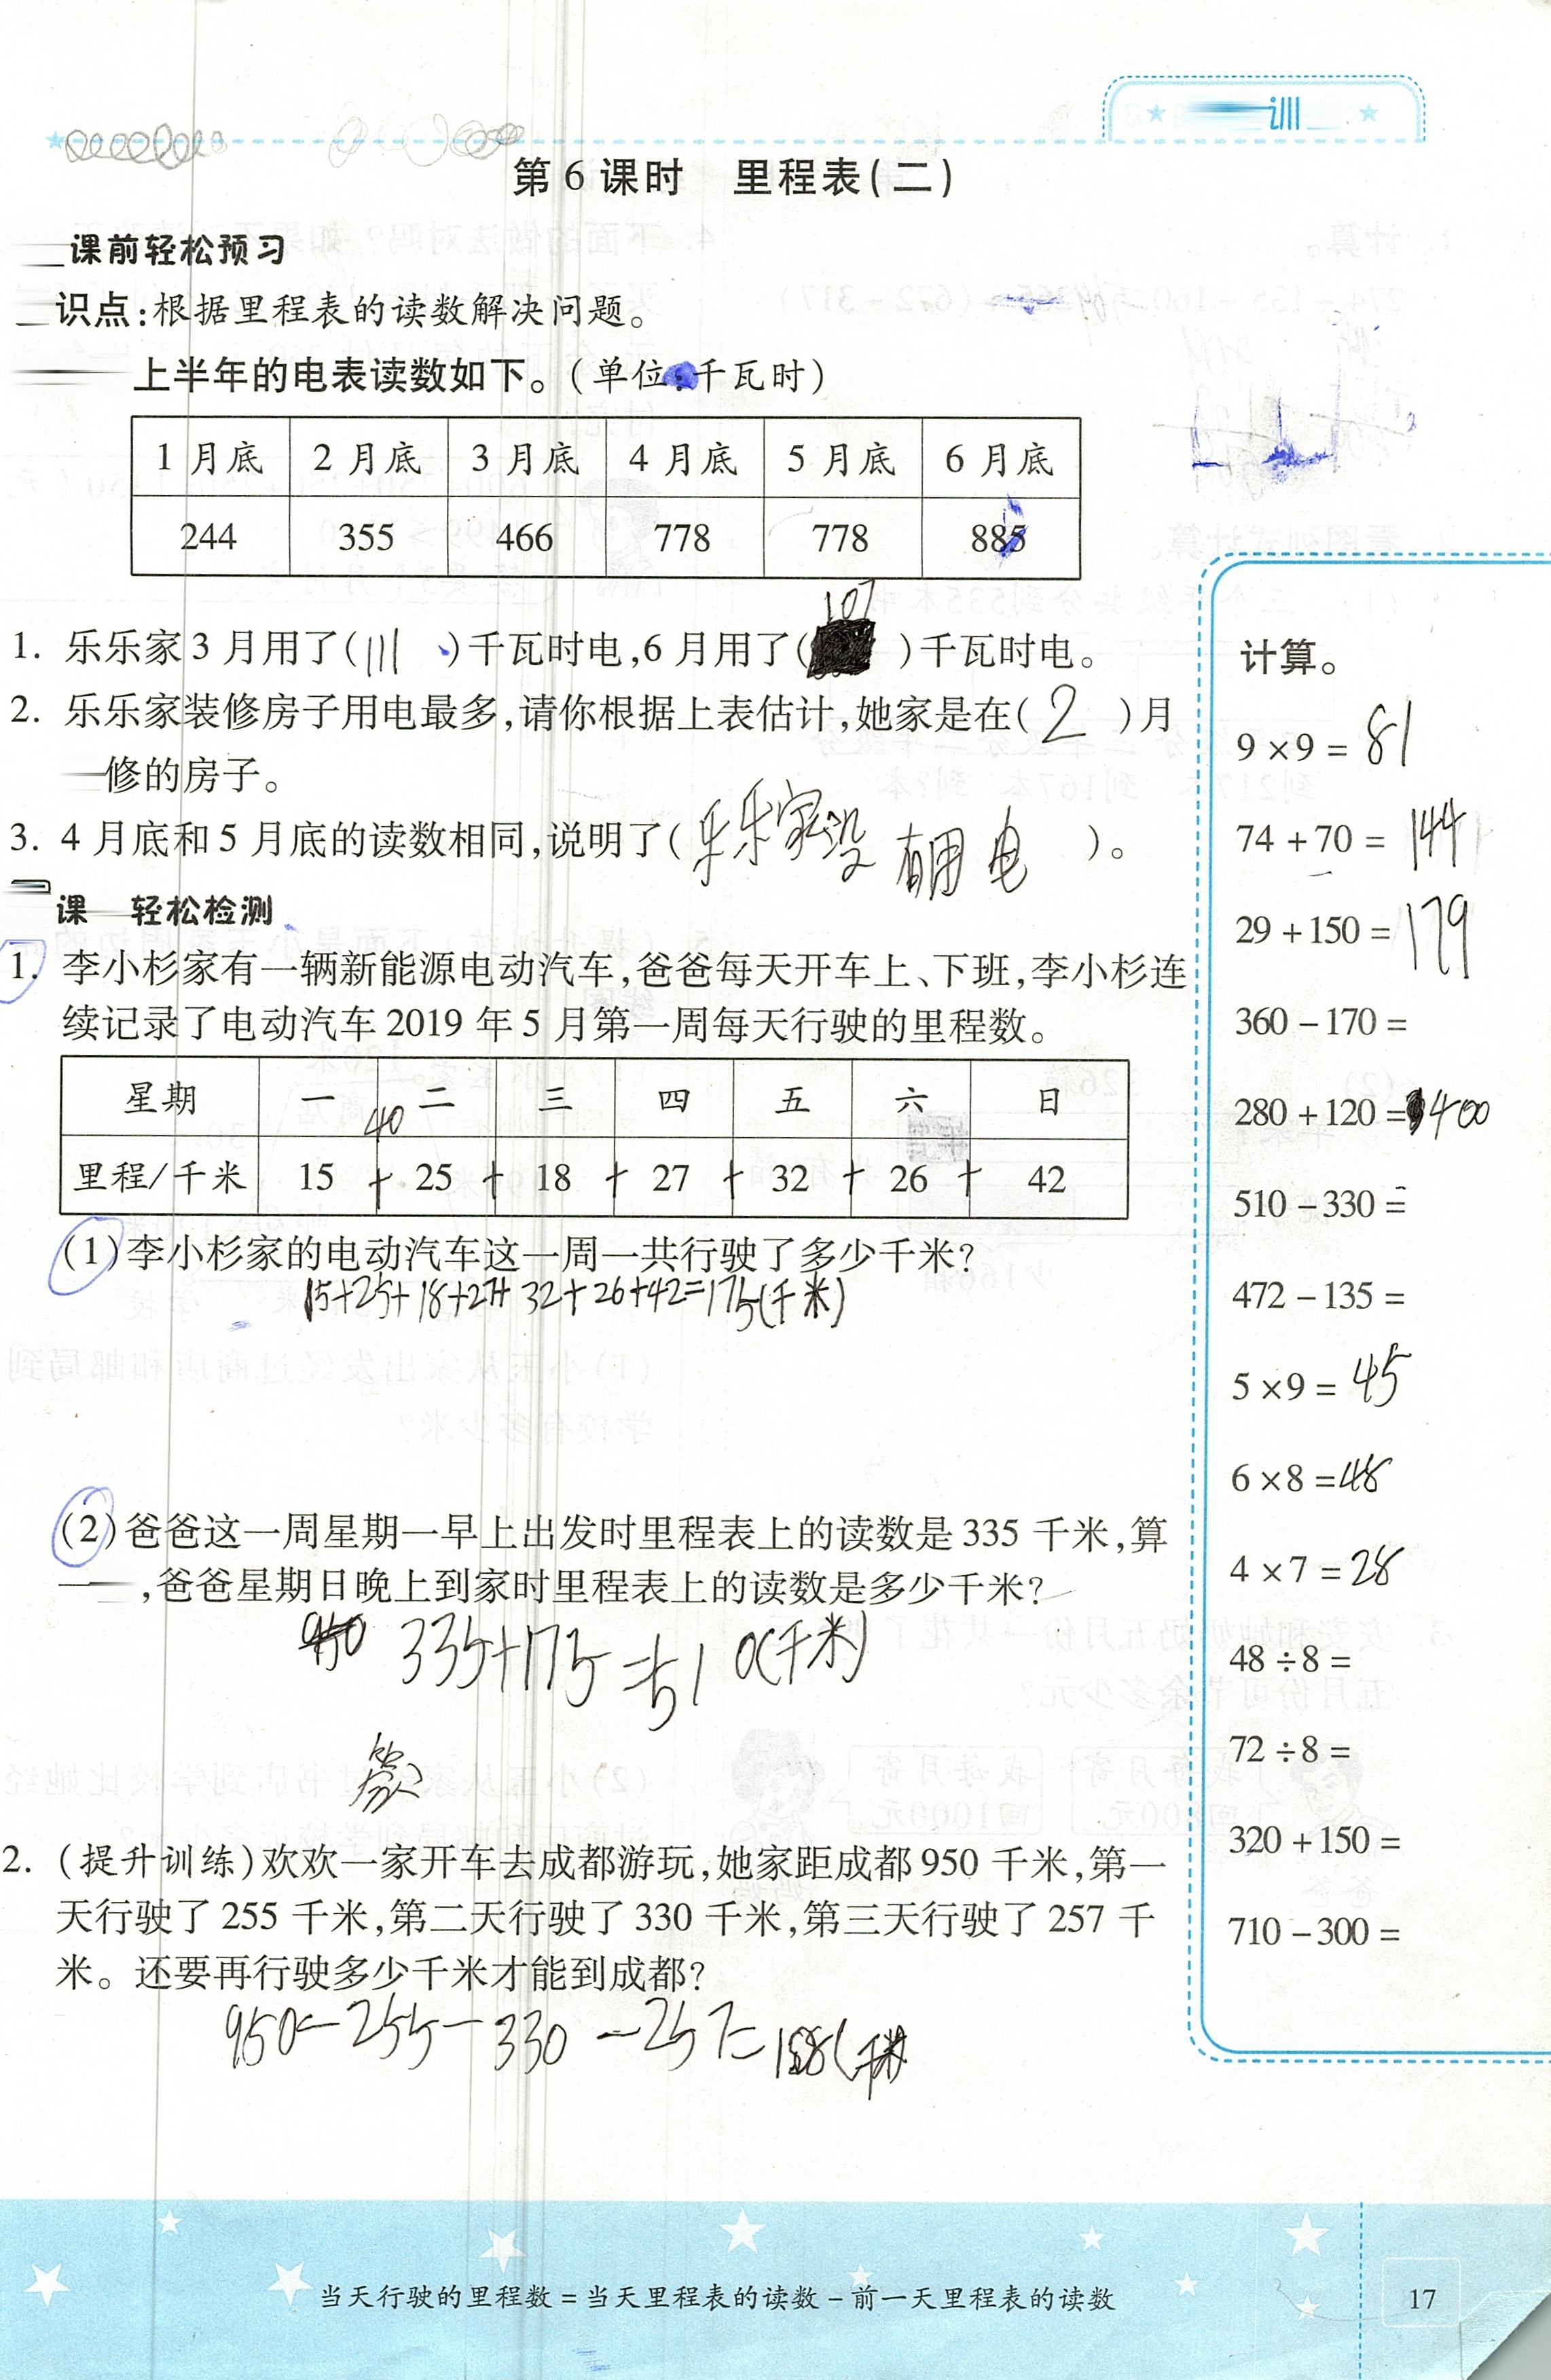 训
第6课时 里程表(二)
课前轻松预习
识点:根据里程表的读数解决问题。
上半年的电表读数如下。(单位:千瓦时)
1月底 2月底 3月底 4月底 5月底 6月底
244 355 466 778 778 885
107
1. 乐乐家3月用了(111)千瓦时电,6月用了( )千瓦时电。
2. 乐乐家装修房子用电最多,请你根据上表估计,她家是在(2)月
修的房子。
3. 4月底和5月底的读数相同,说明了(乐乐家没有用电)。
课 轻松检测
1. 李小杉家有一辆新能源电动汽车,爸爸每天开车上、下班,李小杉连
续记录了电动汽车2019年5月第一周每天行驶的里程数。
星期 一 二 三 四 五 六 日
40
里程/千米 15 + 25 + 18 + 27 + 32 + 26 + 42
(1)李小杉家的电动汽车这一周一共行驶了多少千米?
15+25+18+27+32+26+42=175(千米)
(2)爸爸这一周星期一早上出发时里程表上的读数是335千米,算
,爸爸星期日晚上到家时里程表上的读数是多少千米?
335+175=510(千米)
2. (提升训练)欢欢一家开车去成都游玩,她家距成都950千米,第一
天行驶了255千米,第二天行驶了330千米,第三天行驶了257千
米。还要再行驶多少千米才能到成都?
950-255-330-257=
计算。
9×9=81
74+70=144
29+150=179
360-170=
280+120=400
510-330=
472-135=
5×9=45
6×8=48
4×7=28
48÷8=
72÷8=
320+150=
710-300=
当天行驶的里程数=当天里程表的读数-前一天里程表的读数
17